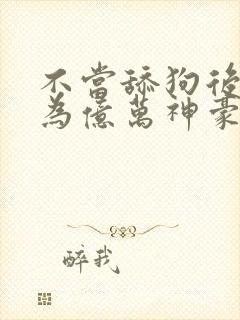 不當舔狗後
為億萬神豪
醉我